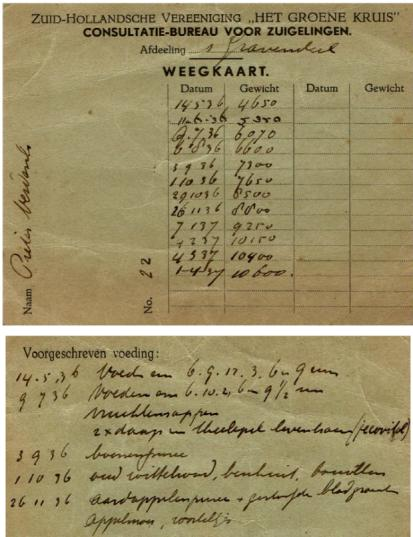 ZUID-HOLLANDSCHE VEREENIGING „HET GROENE KRUIS"
CONSULTATIE-BUREAU VOOR ZUIGELINGEN.
Afdeeling s Gravendeel
WEEGKAART.
Datum Gewicht Datum Gewicht
14 5 36 4650
11-6-36 5350
9.7.36 6070
6 8 36 6600
3 9 36 7300
1 10 36 7650
29 10 36 8500
26 11 36 8800
7 1 37 9250
4 2 37 10150
4 3 37 10400
1-4-37 10600.
Naam Pieter
No. 22
Voorgeschreven voeding:
14.5.36 Voeden om 6.9.12.3.6 en 9 uur
9 7 36 Voeden om 6.10.2.6 en 9½ uur
Vruchtensappen
2x daags een theelepel levertraan
3 9 36
1 10 36 oud wittebrood, beschuit, bouillon
26 11 36 aardappelenpuree + gestoofde bladgroente
Appelmoes, worteltjes